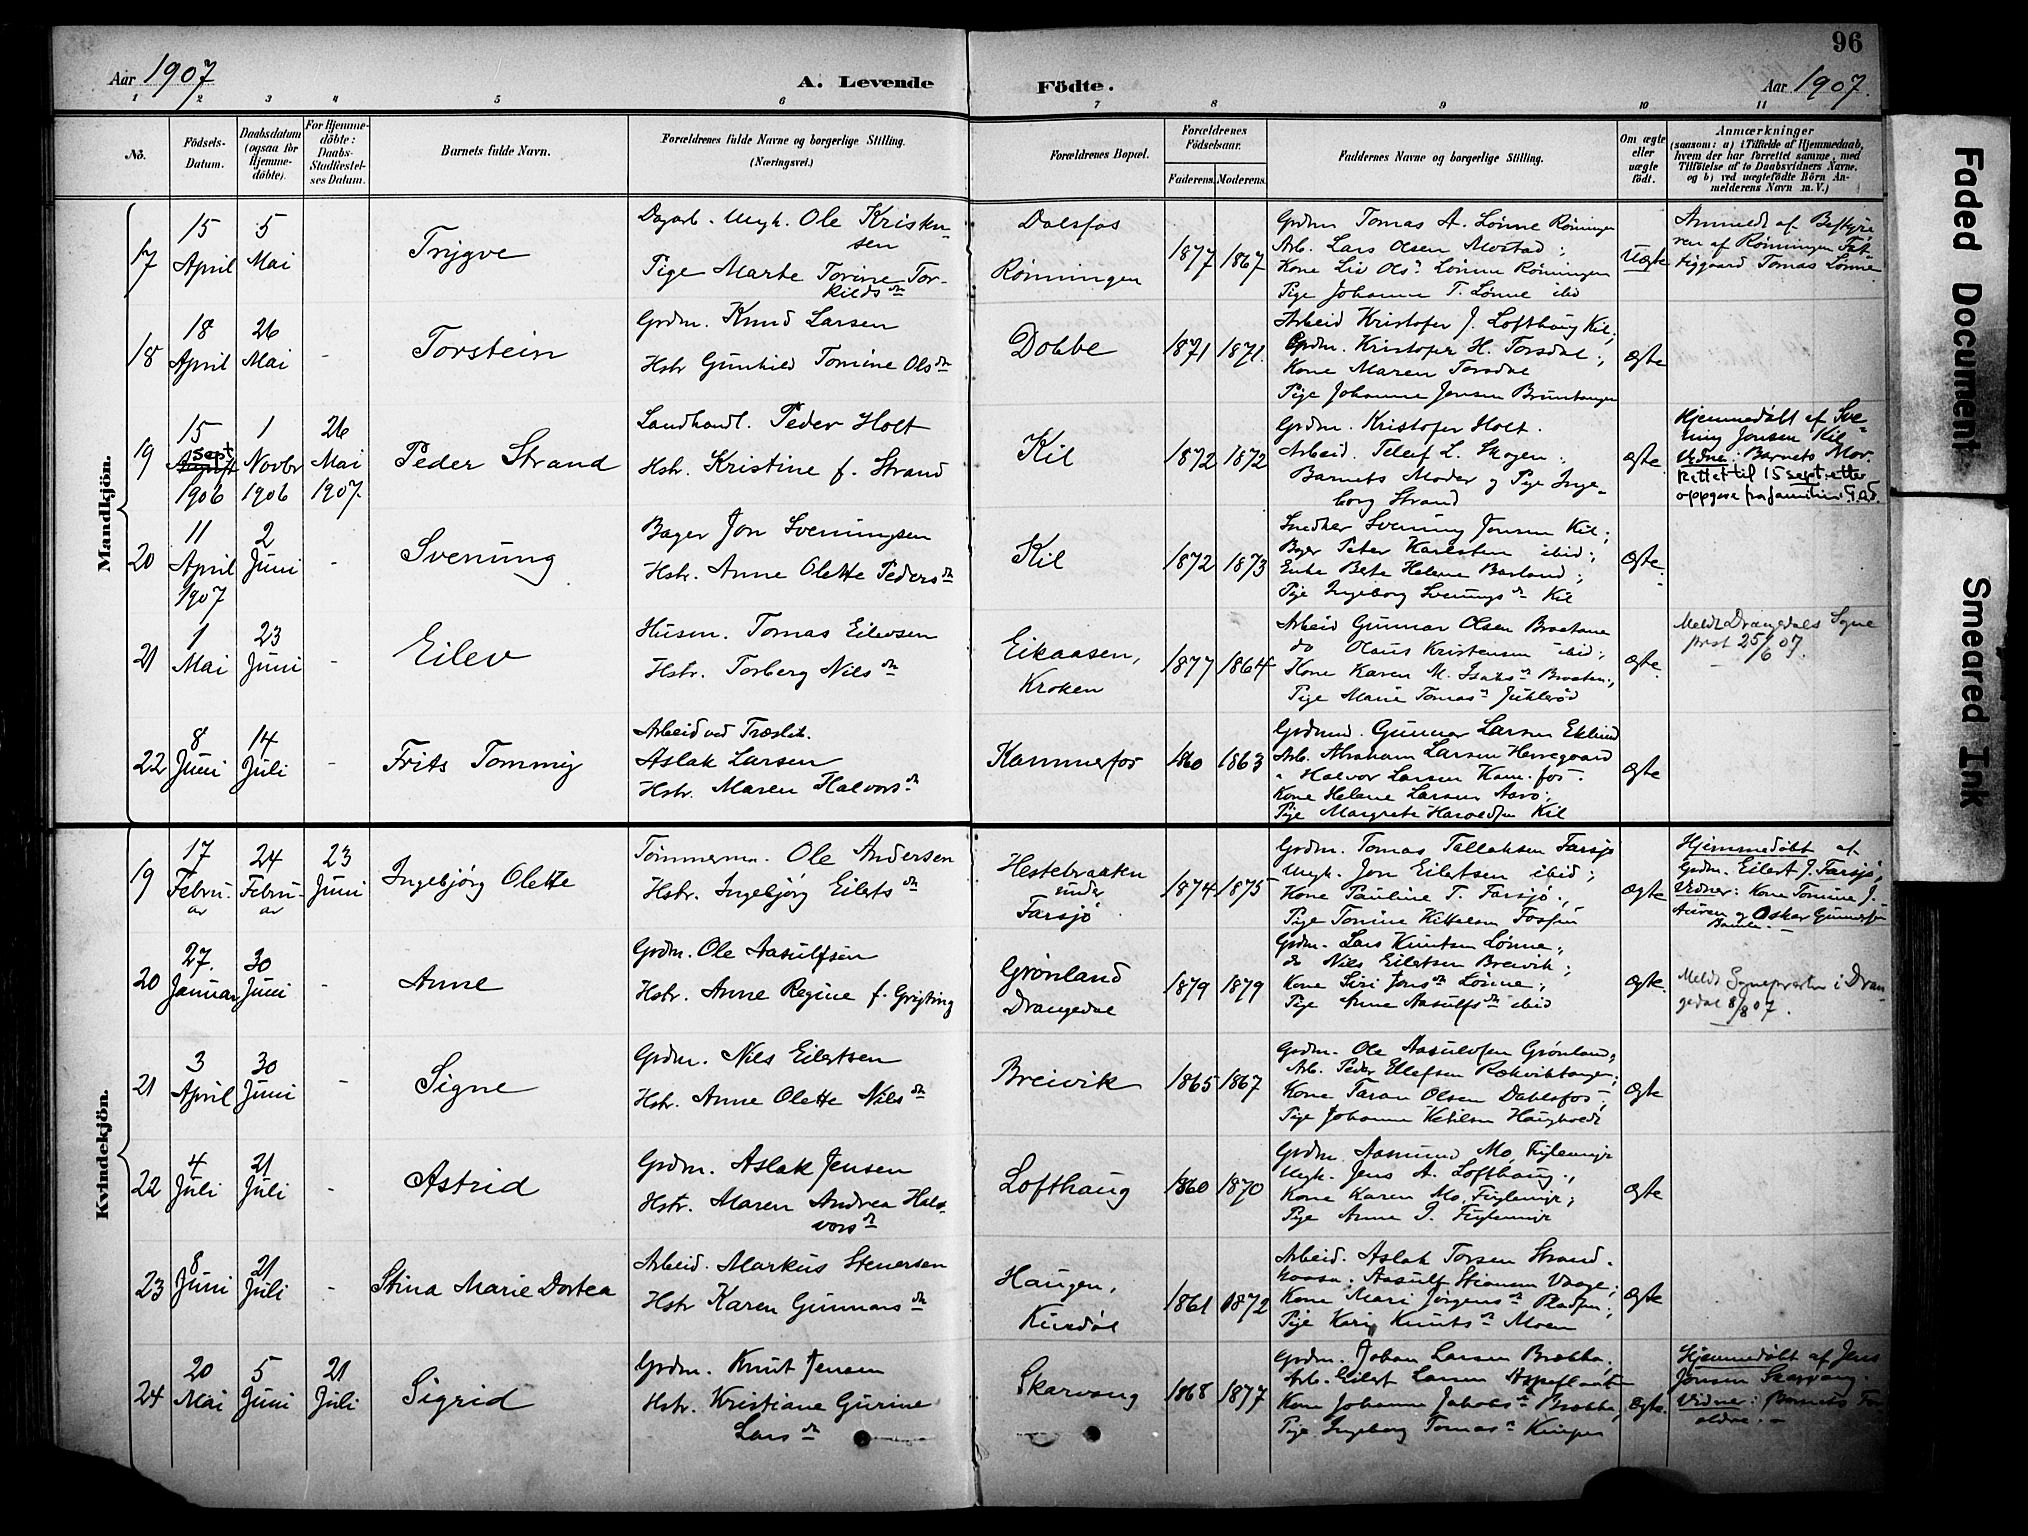 96
Aar 1907 A. Levende Födte. Aar 1907.
1 2 3 4 5 6 7 8 9 10 11
No.
Födsels-
Datum.
Daabsdatum
(ogsaa for
Hjemme-
döbte).
For Hjemme-
döbte:
Daabs-
Stadfæstel-
ses Datum.
Barnets fulde Navn.
Forældrenes fulde Navne og borgerlige Stilling.
(Næringsvei.)
Forældrenes Bopæl.
Forældrenes
Födselsaar.
Faderens. Moderens.
Faddernes Navne og borgerlige Stilling.
Om ægte
eller
uægte
födt.
Anmærkninger
(saasom: a) i Tilfælde af Hjemmedaab,
hvem der har forrettet samme, med
Tilföielse af to Daabsvidners Navne,
og b) ved uægtefödte Börn An-
melderens Navn m. V.)
Mandkjön.
17
15
April
5
Mai
Trygve
Dagarb. Ungk. Ole Kristen-
sen
Pige Marte Torine Tor-
kilds dn
Dalsfos
Rønningen
1877 1867
Grdm Tomas A. Lønne Rønningen
Arb. Lars Olsen Mostad;
Kone Liv Ols dn Lønne Rønningen
Pige Johanne T. Lønne ibid
Uægte
Anmeldt af Bestyre-
ren af Rønningen Fat-
tiggaard Tomas Lønne
18
18
April
26
Mai
-
Torstein
Grdm. Knud Larsen
Hstr Gunhild Tomine Ols dn
Dobbe
1871 1871.
Arbeid Kristofer J. Lofthaug Kil;
Grdm. Kristofer H. Torsdal;
Kone Maren Torsdal
Pige Johanne Jensen Bruntangen
Ægte
19
15
Sept
August
1906
1
Novbr
1906
26
Mai
1907.
Peder Strand
Landhandl. Peder Holt
Hstr. Kristine f. Strand
Kil
1872 1872
Grdm. Kristofer Holt.
Arbeid. Tellef L. Skogen;
Barnets Moder og Pige Inge-
borg Strand
Ægte
Hjemmedøbt af Sve-
ning Jonsen Kil
Vidne: Barnets Mor
Rettet til 15 sept. etter
oppgave fra familien
20
11
April
1907
2
Juni
-
Svenung
Bager Jon Sveningsen
Hstr. Anne Olette Peders dn
Kil
1872 1873
Snedker Svening Jonsen Kil;
Bager Peter Karlsten ibid;
Enke Berte Helene Barland;
Pige Ingeborg Svenings dn Kil
Ægte.
21
1
Mai
23
Juni
-
Eilev
Husm. Tomas Eilevsen
Hstr. Torberg Nils dn
Eikaasen,
Kroken
1877 1864
Arbeid Gunnar Olsen Braatane
do Olaus Kristensen ibid;
Kone Karen M. Isaks dn Braaten;
Pige Marie Tomas dn
Ægte.
Meldt Drangedals Sogne
prest 25/6 07.
22
8
Juni
14
Juli
-
Frits Tommy
Arbeid ved Træslib.
Aslak Larsen
Hstr. Maren Halvors dn
Kammerfos
1860 1863
Grdmd. Gunnar Larsen Eklund
Arb. Abraham Larsen Herregaard
" Halvor Larsen Kam.fos
Kone Helene Larsen Aarø;
Pige Margrete Haroldsen Kil
Ægte
Kvindekjön.
19
17
Febru-
ar
24
Febru-
ar
23
Juni
Ingebjörg Olette
Tømmerm. Ole Andersen
Hstr. Ingebjörg Eilerts dn
Hestebraaten
under
Farsjø
1874 1875
Grdm. Tomas Tallaksen Farsjø
Ungk. Jon Eilertsen ibid;
Kone Pauline T. Farsjø;
Pige Tomine Kittelsen Fossen
Ægte
Hjemmedøbt af
Grdm. Eilert J. Farsjø,
Vidner: Kone Tomine J.
Auren og Oskar Gundersen
Bamle.-
20
27.
Januar
30
Juni
-
Anne
Grdm. Ole Aasulfsen
Hstr. Anne Regine f. Grigting
Grønland
Drangedal
1879 1879
Grdm. Lars Knutsen Lønne;
do Nils Eilertsen Breivik;
Kone Siri Jons dn Lønne;
Pige Anne Aasulfs dn ibid
Ægte.
Meldt Sognepresten i Dran-
gedal 8/8 07.
21
3
April
30
Juni
-
Signe
Grdm. Nils Eilertsen
Hstr. Anne Olette Nils dn
Breivik
1865 1867
Grdm. Ole Aasulvsen Grønland;
Arb. Peder Ellefsen Rækviktangen;
Kone Taran Olsen Dahlsfos;
Pige Johanne Ketilsen Haugholt
Ægte
22
4
Juli
21
Juli
-
Astrid
Grdm. Aslak Jensen
Hstr. Maren Andrea Hal-
vors dn
Lofthaug
1860 1870
Grdm. Aasmund Mo, Fuglemyr
Ungk. Jens A. Lofthaug;
Kone Karen Mo, Fuglemyr;
Pige Anne J. Fuglemyr
Ægte
23
8
Juni
21
Juli
-
Stina Marie Dortea
Arbeid. Markus Stenersen
Hstr Karen Gunnars dn
Haugen,
Kurdøl
1861 1872
Arbeid. Aslak Torsen Strand-
kaasa; Aasulf Stiansen Vaage;
Kone Mari Jørgens dn Pladsen;
Pige Kari Knuts dn Moen
Ægte
24
20
Mai
5
Juni
21
Juli
Sigrid
Grdm. Knut Jensen
Hstr. Kristiane Gurine
Lars dn
Skarvang
1868 1877
Grdm. Johan Larsen Brække.
Arb. Eilert Larsen Aspeflaat
Kone Johanne Jakobs dn Brække,
Pige Ingeborg Tomas dn
Ægte.
Hjemmedøbt af Jens
Jensen Skarvang.
Vidner: Barnets For-
ældre.-
Faded Document
Smeared Ink